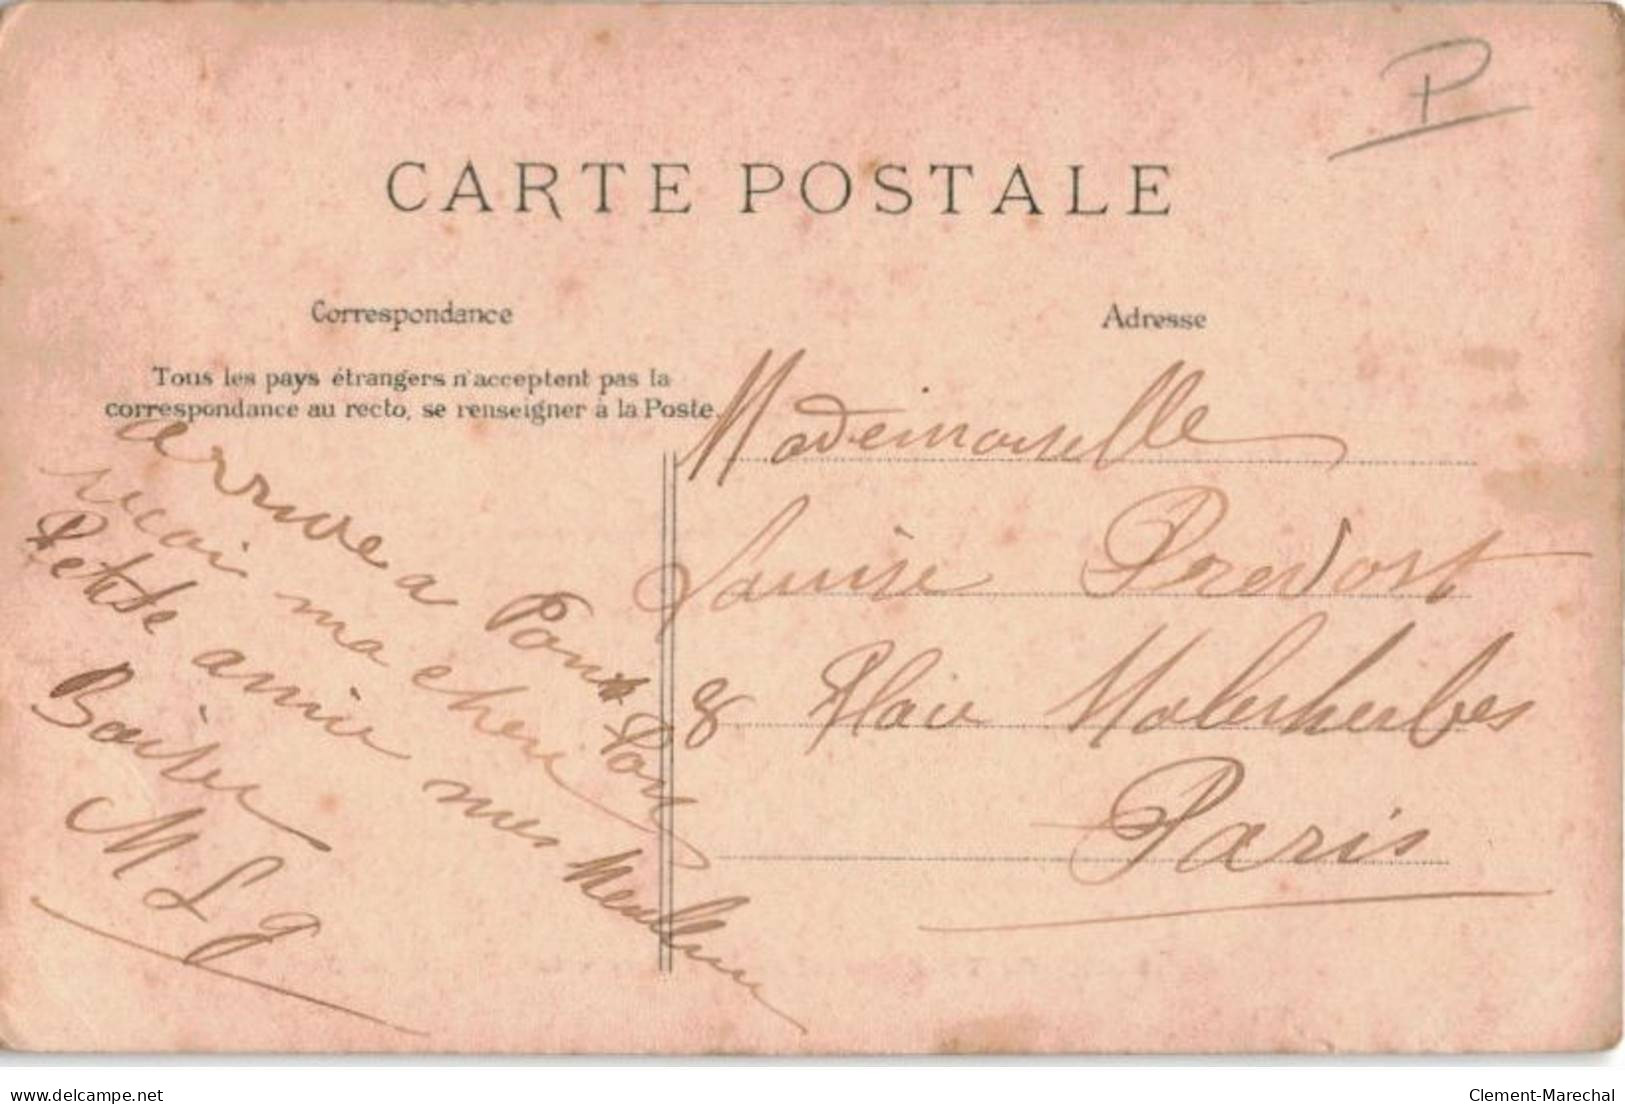 P
CARTE POSTALE
Correspondance
Adresse
Tous les pays étrangers n'acceptent pas la
correspondance au recto, se renseigner à la Poste.
arrive a Pont
recoi ma cheri
Petite amie mes Meilleur
Baiser
M L g
Mademoiselle
Louise Prevost
8 Place Malesherbes
Paris
delcampe.net
Clement-Marechal